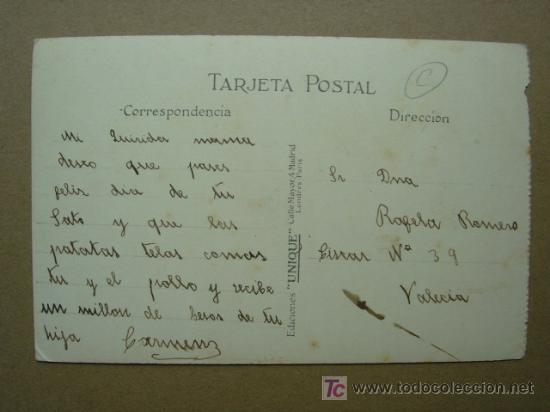 C
TARJETA POSTAL
Correspondencia
Dirección
Mi Quirida mama
deseo que pases
felis dia de tu
Sato y que las
patatas telas comas
tu y el pollo y recibe
un millon de besos de tu
hija Carmenz
Ediciones "UNIQUE" Calle Mayor, 4 Madrid
Londres-Paris
Sr Dna
Rafela Romero
Ciscar Nº 39
Valecia
todocoleccion
www.todocoleccion.net